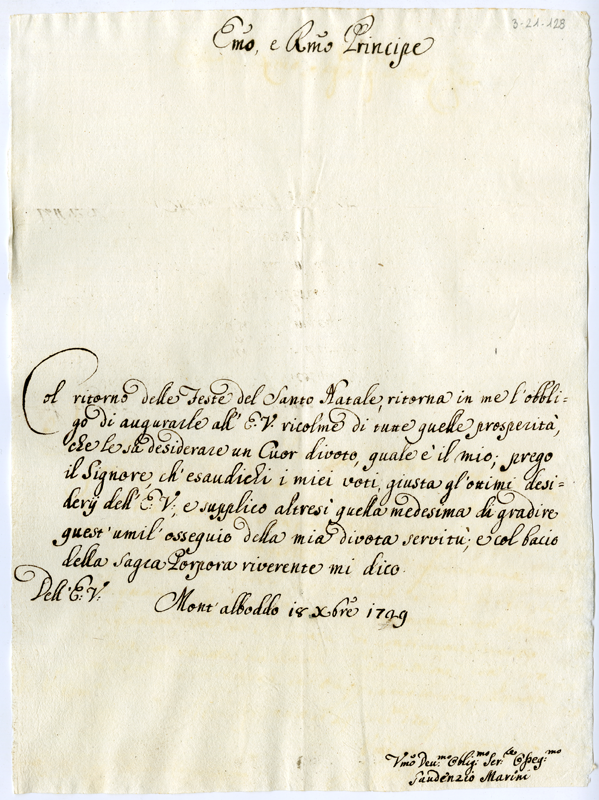 3-21-128
Em̃o, e Rm̃o Principe
Col ritorno delle Feste del Santo Natale, ritorna in me l'obbli=
go di augurarle all' E.V. ricolme di tutte quelle prosperità,
che le sà desiderare un Cuor divoto, quale è il mio; prego
il Signore, ch'esaudichi i miei voti, giusta gl'ottimi desi=
derÿ dell' E.V., e supplico altresì quella medesima di gradire
quest'umil'osseguio della mia divota servitù; e col bacio
della Sagra Porpora riverente mi dico.
Dell' E.V.
Mont'alboddo 18 Xbre 1729
Vmõ Deu:mo Oblig:mo Ser:re Osseq:mo
Gaudenzio Marini